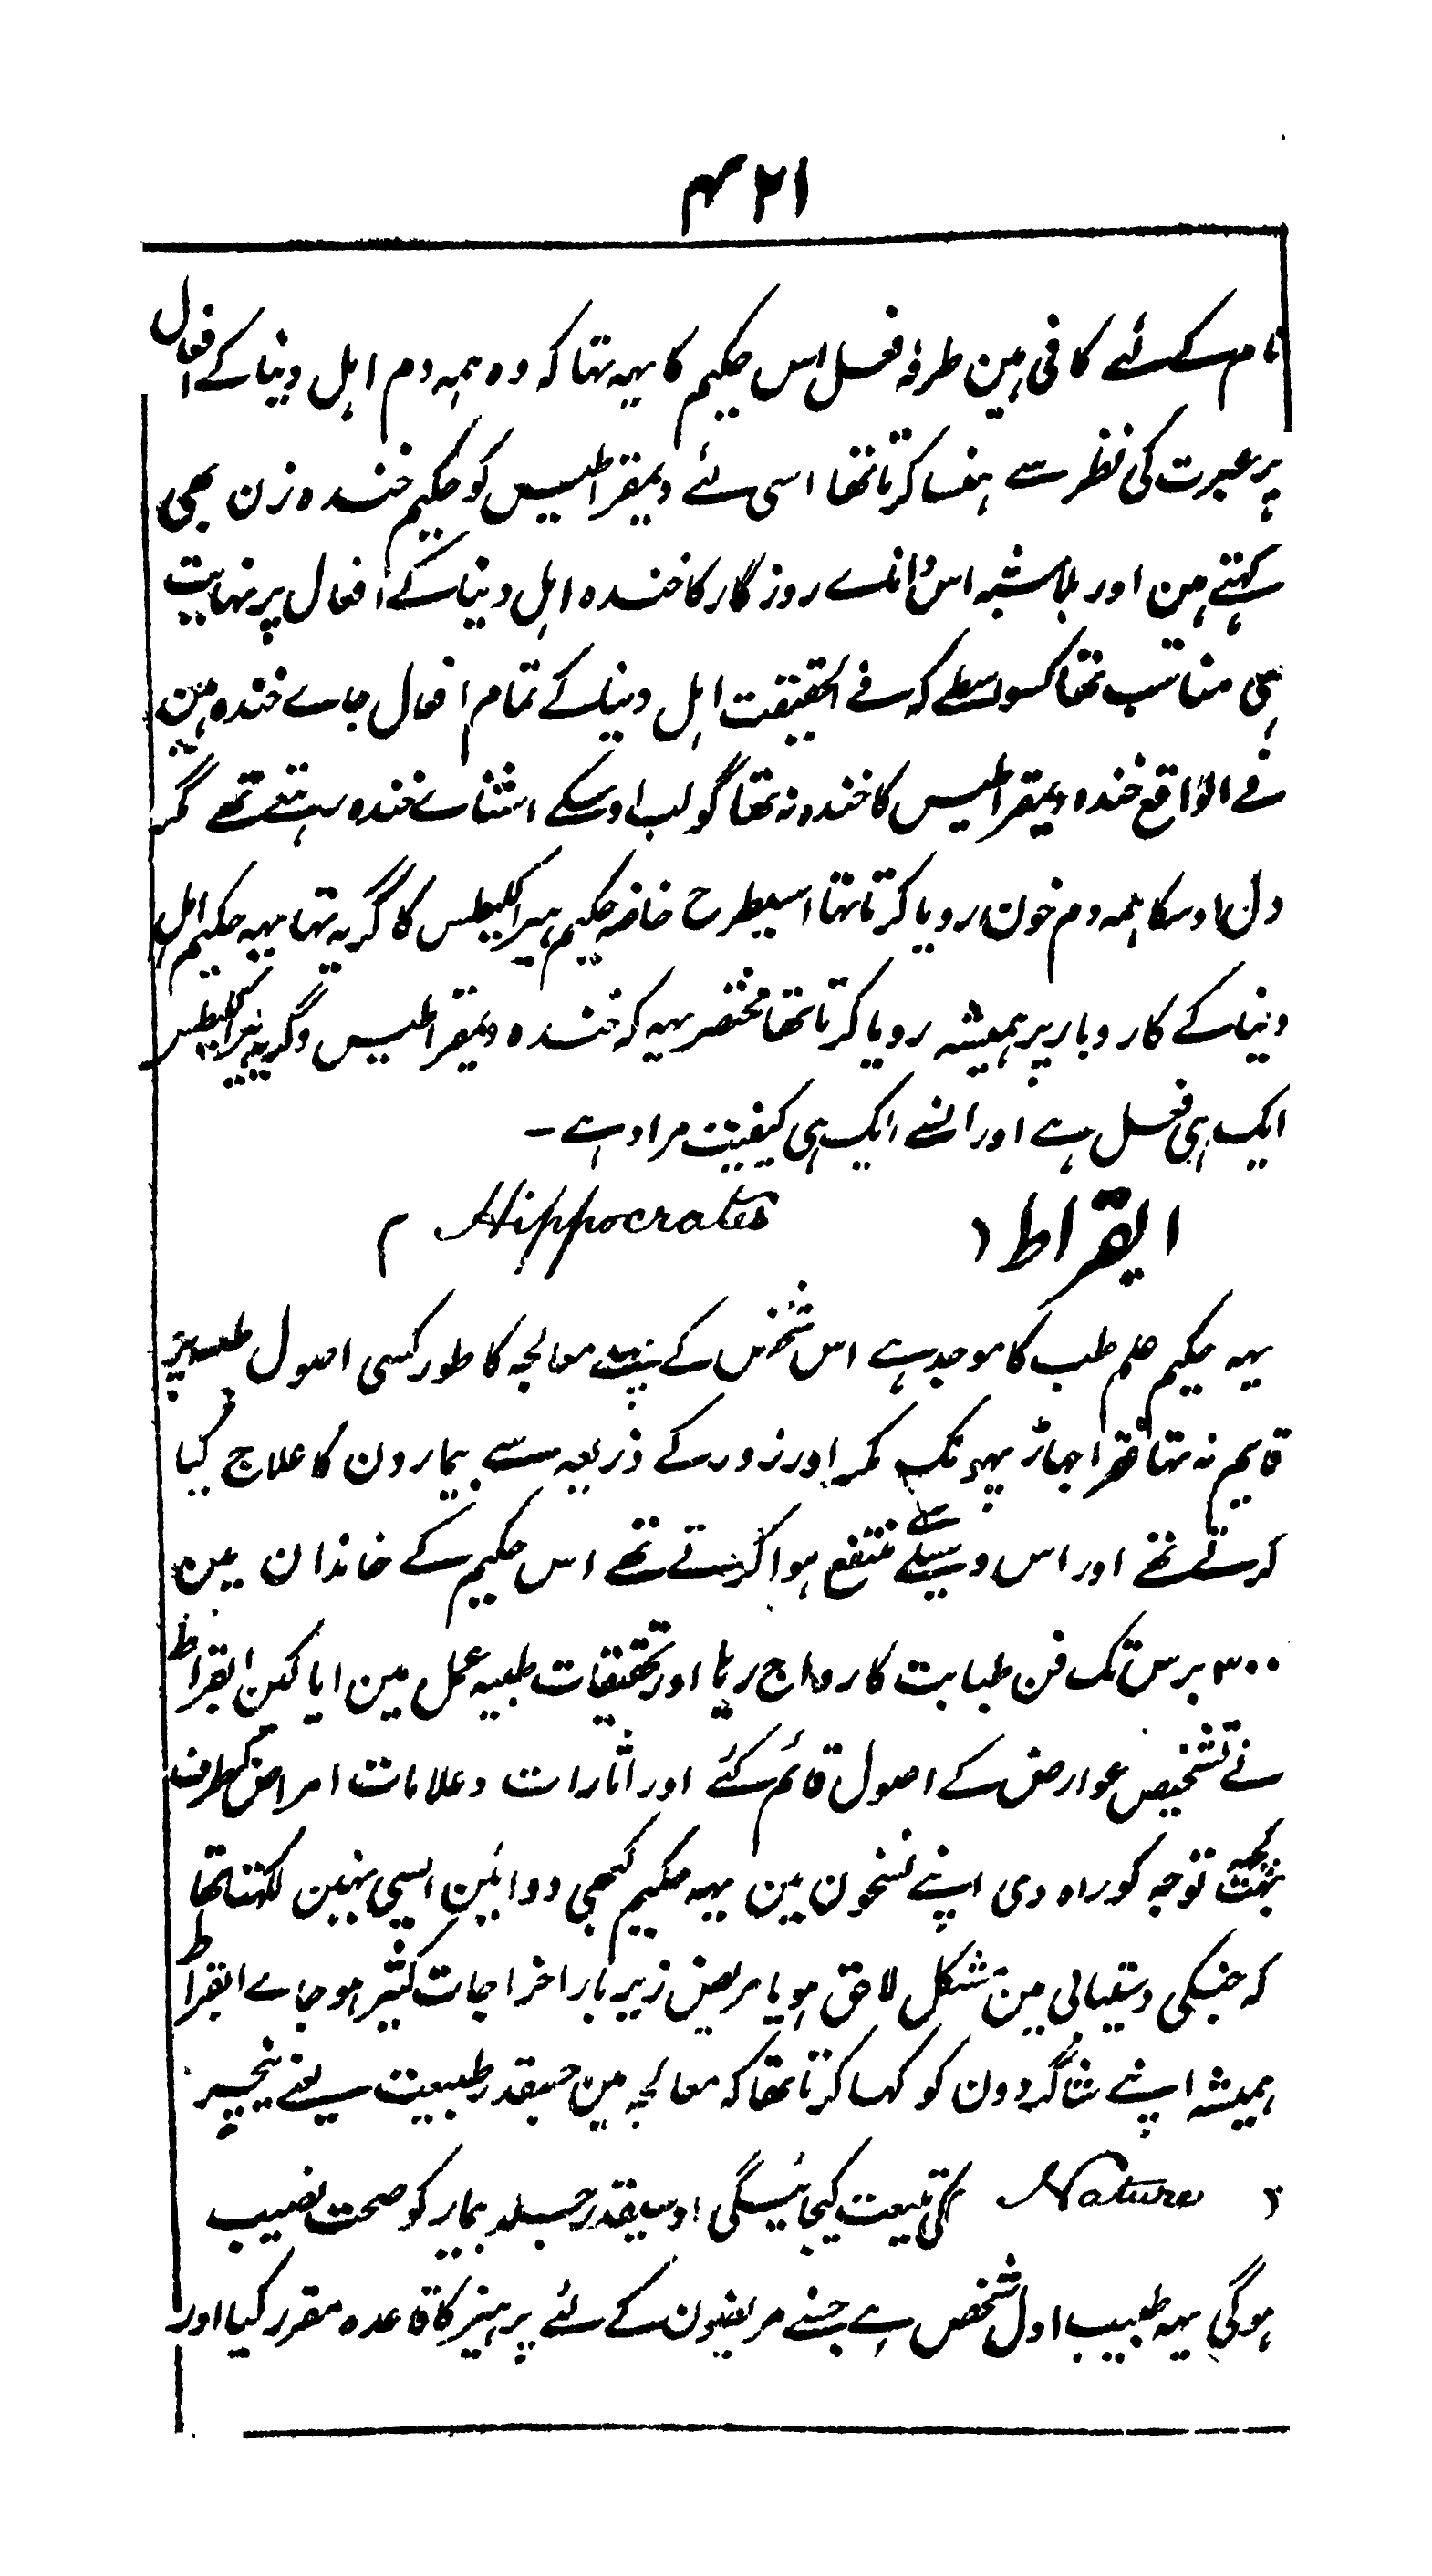 ۲۱۴
نام کے لئے کافی ہین طرفہ فعل اس حکیم کا یہہ تہا کہ وہ ہمہ دم اہل دنیا کے افعال
پر عبرت کی نظر سے ہنسا کرتا تھا اسی لئے دیمقراطیس کو حکیم خندہ زن بھی
کہتے ہین اور بلا شبہ اس دانائے روزگار کا خندہ اہل دنیا کے افعال پر نہایت
ہی مناسب تھا کسواسطے کہ فے الحقیقت اہل دنیا کے تمام افعال جاے خندہ ہین
فے الواقع خندہ دیمقراطیس کا خندہ نہ تھا گو لب اوسکے اشناے خندہ رہتے تھے مگر
دل اوسکا ہمہ دم خون رویا کرتا تہا اسیطرح خاصہ حکیم ہیراکلیطس کا گریہ تہا یہہ حکیم اہل
دنیا کے کاروبار پر ہمیشہ رویا کرتا تھا مختصر یہہ کہ خندہ دیمقراطیس و گریہ ہیراکلیطس
ایک ہی فعل ہے اور انسے ایک ہی کیفیت مراد ہے ۔
ابقراط ( Hippocrates )
یہہ حکیم علم طب کا موجد ہے اس شخص کے پہلے معالجہ کا طور کسی اصول طبیہ پر
قایم نہ تہا فقرا جہاڑ پہونک مکر اور زور کے ذریعہ سے بیمارون کا علاج کیا
کرتے تھے اور اس وسیلے سے منتفع ہوا کرتے تھے اس حکیم کے خاندان مین
۳۰۰ برس تک فن طبابت کا رواج رہا اور تحقیقات طبیہ عمل مین ایا لیکن ابقراط
نے تشخیص عوارض کے اصول قائم کئے اور اثارات و علامات امراض کیطرف
بہت توجہ کو راہ دی اپنے نسخون مین یہہ حکیم کبھی دوائین ایسی نہین لکھتا تھا
کہ جنکی دستیابی مین مشکل لاحق ہو یا مریض زیر بار اخراجات کثیر ہو جاے ابقراط
ہمیشہ اپنے شاگردون کو کہا کرتا تھا کہ معالجہ مین جسقدر طبیعت یعنے نیچر
( Nature ) کی تبیعت کیجائیگی اوسیقدر جلد بیمار کو صحت نصیب
ہوگی یہہ طبیب اول شخص ہے جسنے مریضون کے لئے پرہیز کا قاعدہ مقرر کیا اور